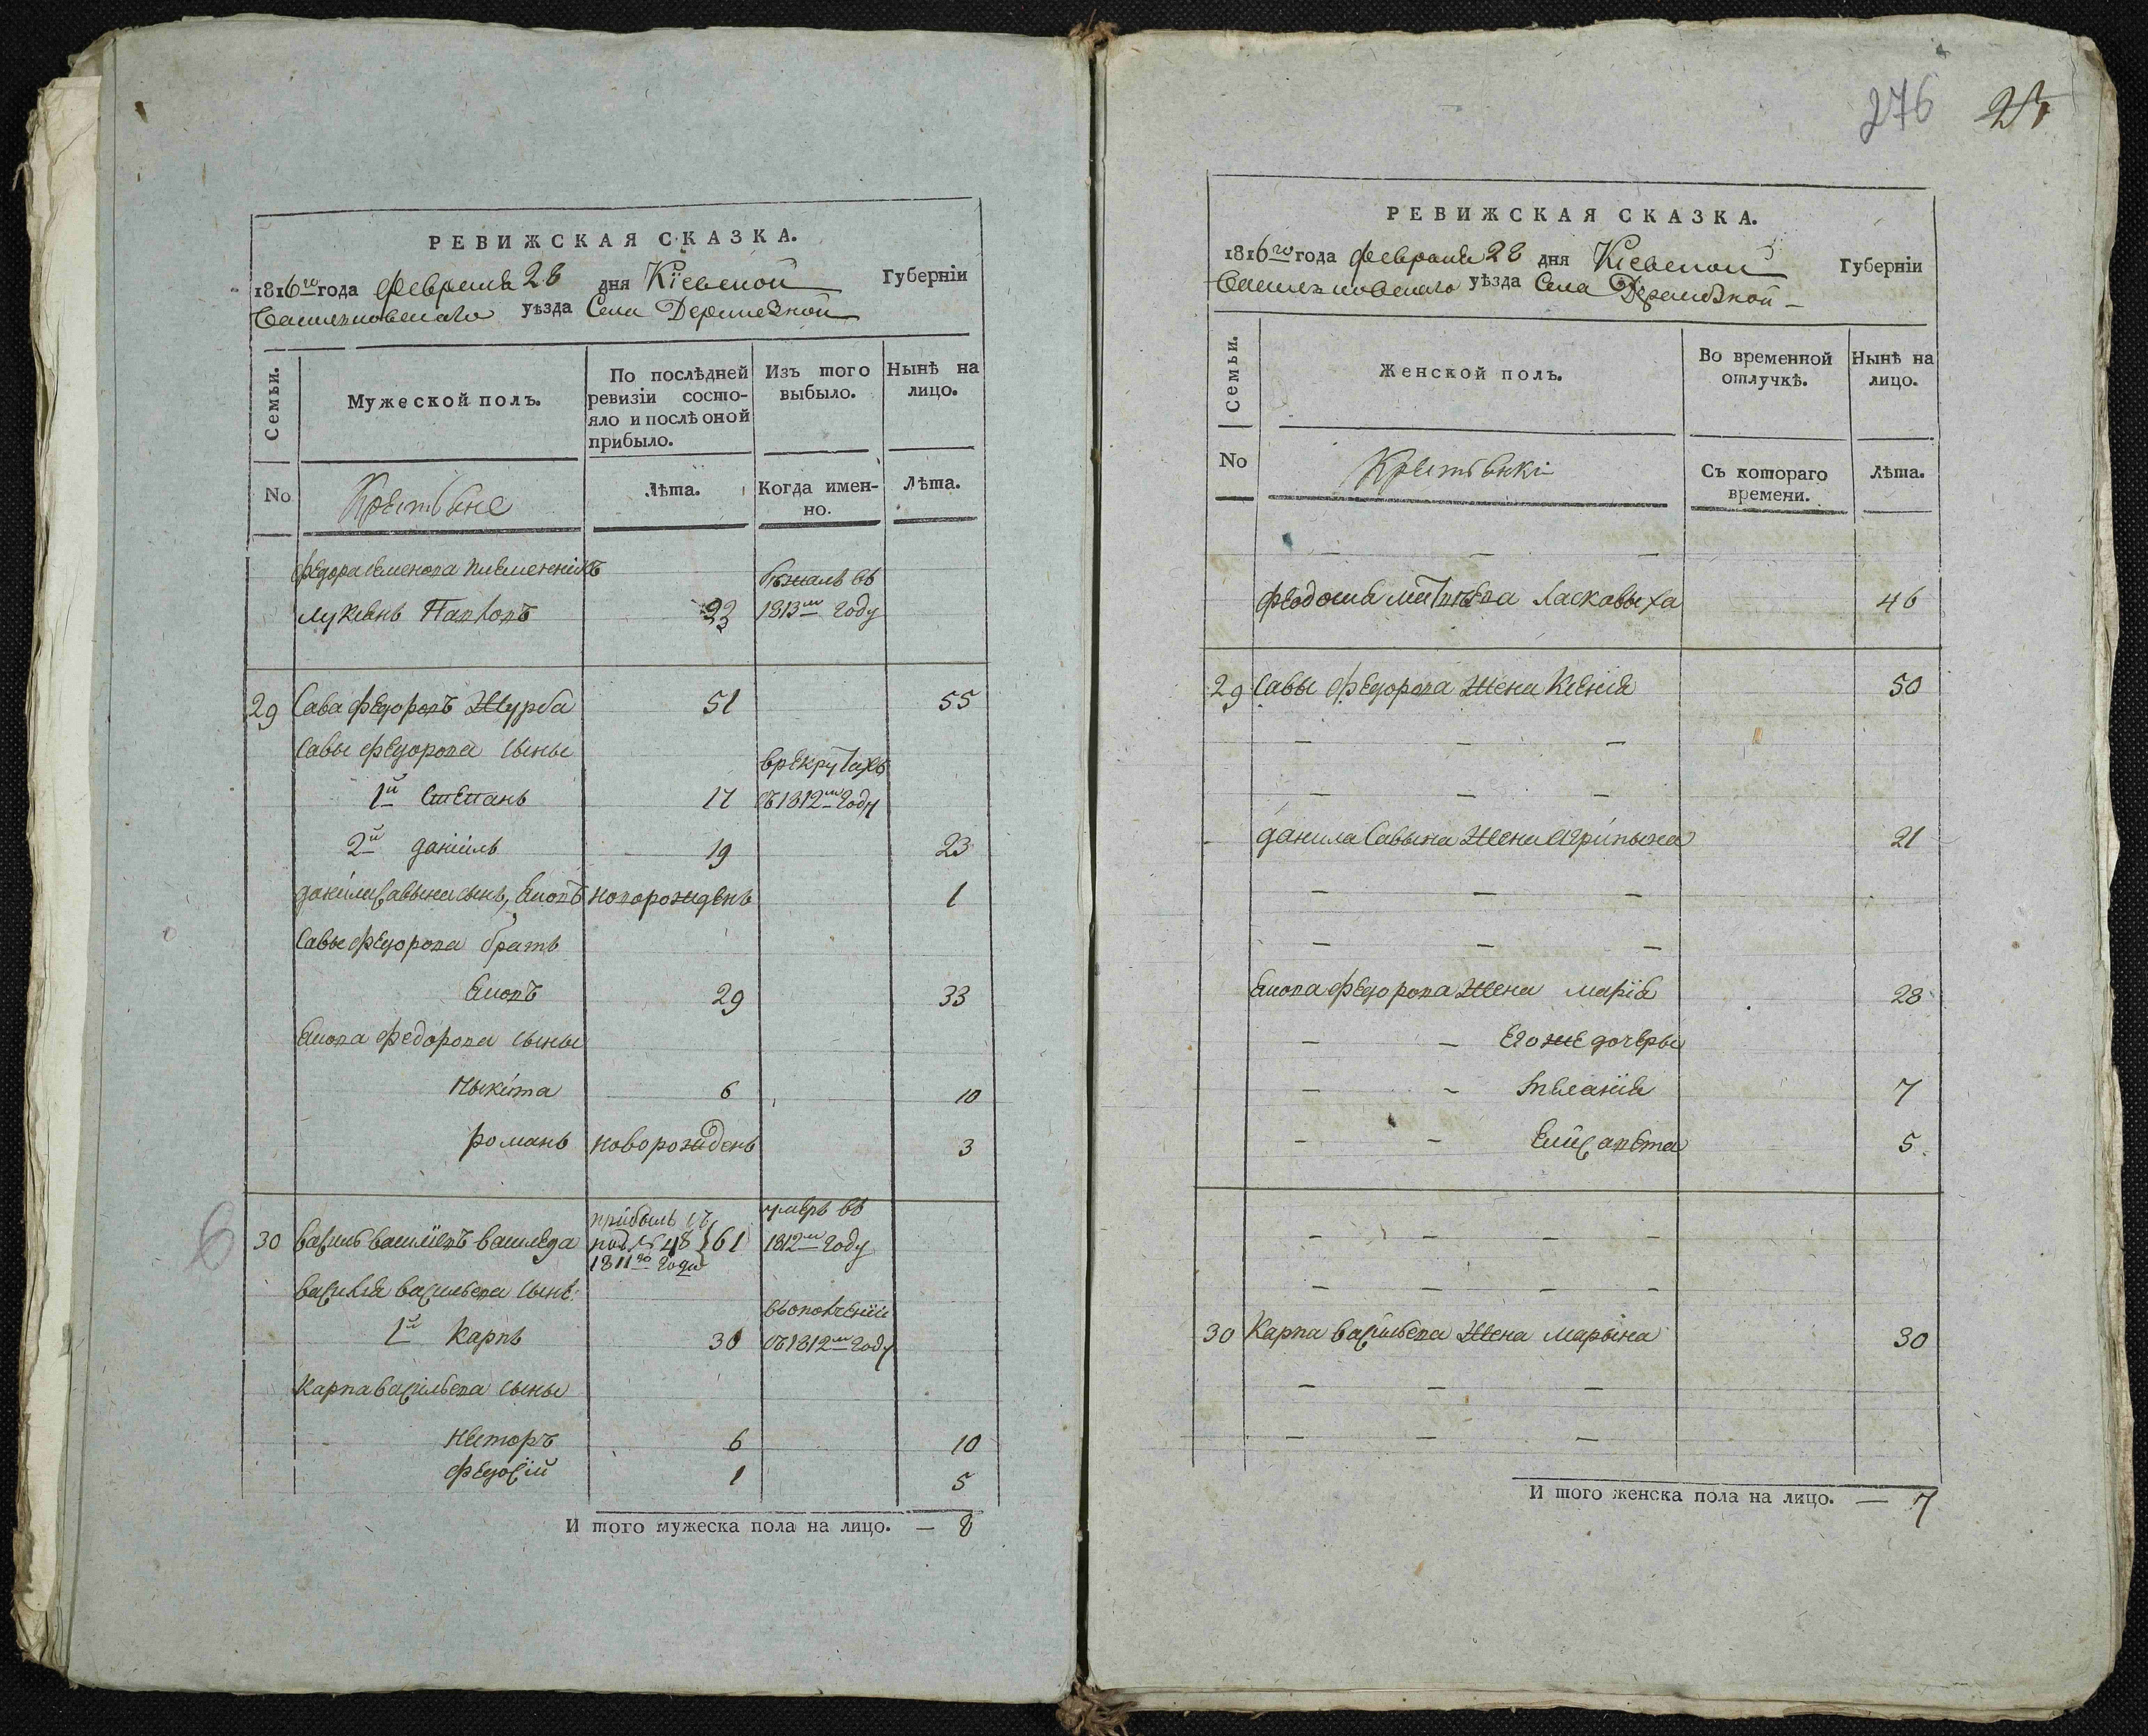 РЕВИЖСКАЯ СКАЗКА.
1816го года февраля 28 дня Кіевской Губерніи
Васильковскаго уѣзда Села
Семьи.
Мужеской полъ.
По послѣдней ревизіи состояло и послѣ оной прибыло.
Изъ того выбыло.
Нынѣ на лицо.
No
Крестьяне
Лѣта.
Когда именно.
Лѣта.
Федора Семенова племенникъ
бѣжалъ въ
Лукіянъ Павловъ 23 1813м году
29 Сава Федоровъ Журба 51 55
Савы Федорова сыны
врекрутахъ
1й Степанъ 17 съ 1812м году
2й Даніилъ 19 23
Данила Савына сынъ, новорожденъ 1
Савы Федорова братъ
29 33
Федорова сыны
Ныкита 6 10
Романъ новорожденъ 3
прибылъ съ умеръ въ
30 Василь Васильевъ 61 1812м году
1811го года
Василія Васильева сынъ:
вьополченіи
1й Карпъ 30 съ 1812м году
Карпа Васильева сыны
Несторъ 6 10
Федосій 1 5
И того мужеска пола на лицо. — 8
276 25
РЕВИЖСКАЯ СКАЗКА.
1816го года февраля 28 дня Кіевской Губерніи
Васильковскаго уѣзда Села
Семьи.
Женской полъ.
Во временной отлучкѣ.
Нынѣ на лицо.
No
Крестьянки
Съ котораго времени.
Лѣта.
— — —
Матвѣева Ласковыха 46
29 Савы Федорова Жена Ксенія 50
— — —
— — —
Данила Савына Жена Агрипына 21
— — —
— — —
Федорова Жена Марія 28
— — Егоже дочеры
— — Меланія 7
— — Елисавета 5
— — — —
— — — —
30 Карпа Васильева Жена Марына 30
— — —
— — —
И того женска пола на лицо. — 7